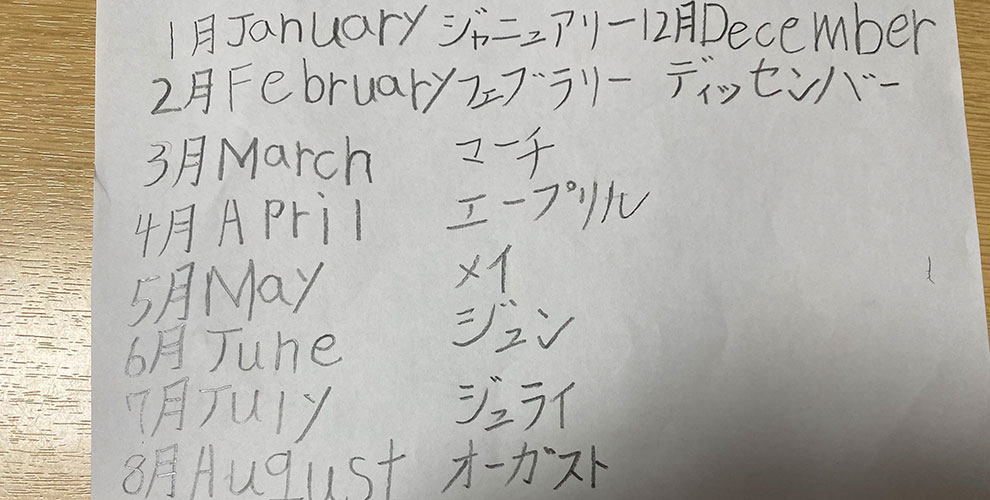 1月January ジャニュアリー 12月December
2月February フェブラリー ディッセンバー
3月March マーチ
4月April エープリル
5月May メイ
6月June ジュン
7月July ジュライ
8月August オーガスト